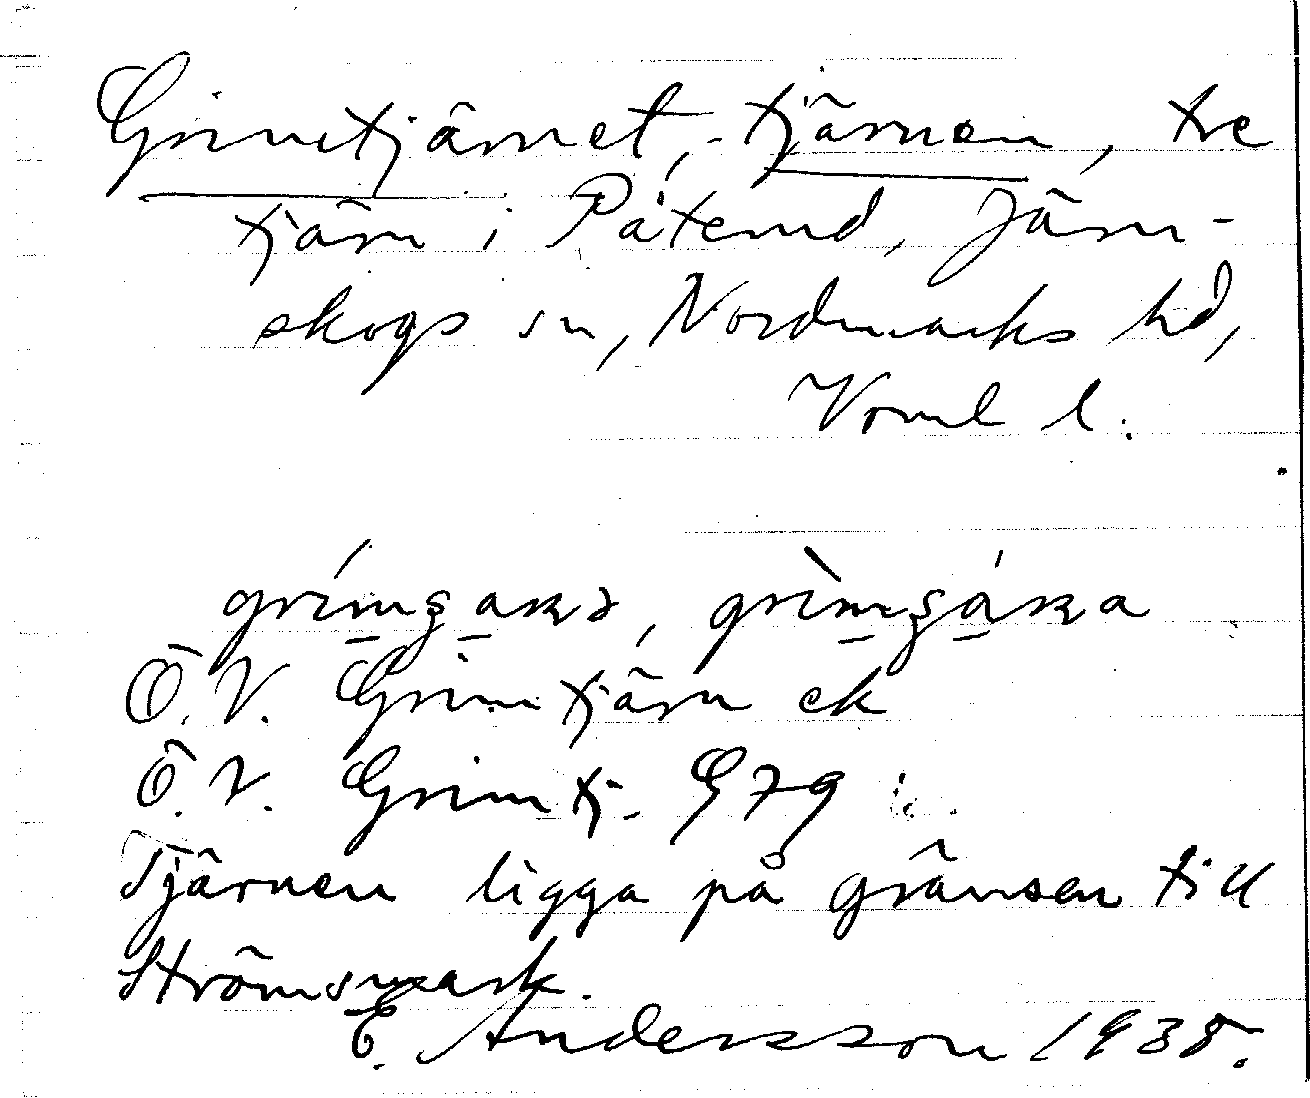 Grimtjärnet, -tjärnen, tre
tjärn i Påterud, Järn-
skogs sn, Nordmarks hd,
Värml l.
Ö.V. Grimtjärn ek
Ö.V. Grimtj. G79
Tjärnen ligga på gränsen till
Strömsmark.
E. Andersson 1935.